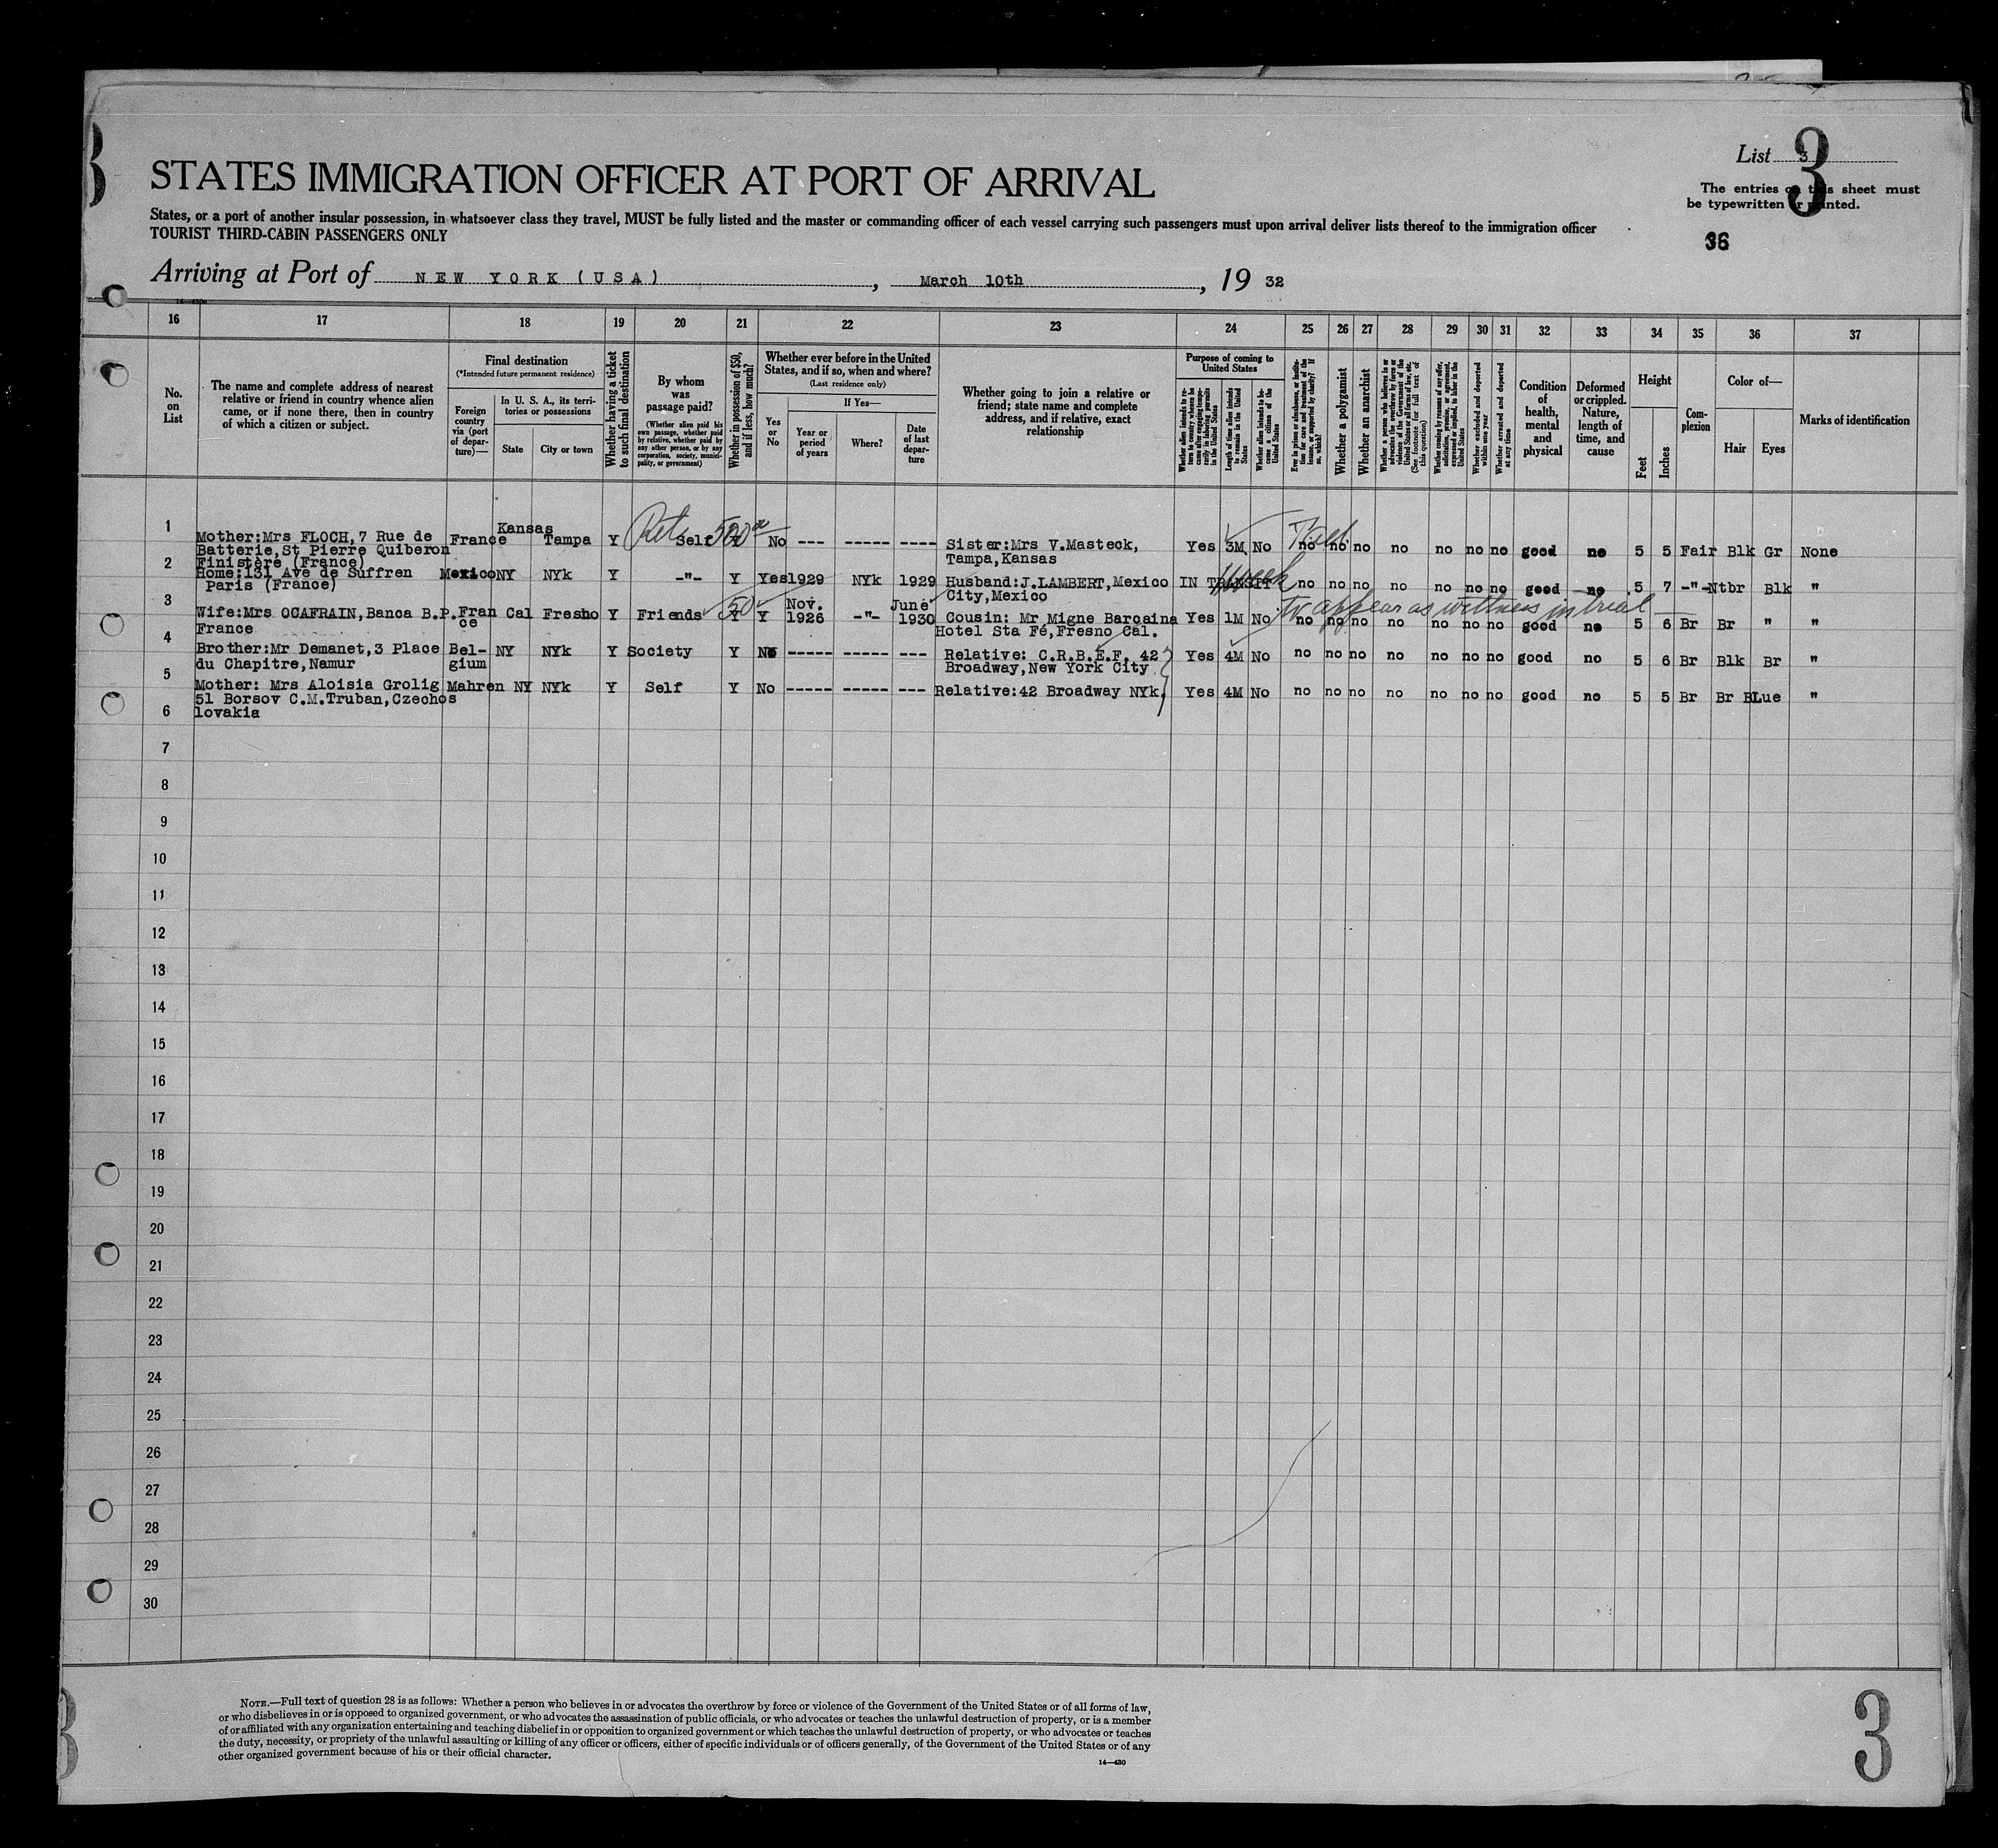 3
List 3
STATES IMMIGRATION OFFICER AT PORT OF ARRIVAL
The entries on this sheet must
be typewritten or printed.
States, or a port of another insular possession, in whatsoever class they travel, MUST be fully listed and the master or commanding officer of each vessel carrying such passengers must upon arrival deliver lists thereof to the immigration officer
TOURIST THIRD-CABIN PASSENGERS ONLY
36
Arriving at Port of NEW YORK (USA), March 10th, 19 32
16 17 18 19 20 21 22 23 24 25 26 27 28 29 30 31 32 33 34 35 36 37
No. on List
The name and complete address of nearest relative or friend in country whence alien came, or if none there, then in country of which a citizen or subject.
Final destination
(*Intended future permanent residence)
Foreign country via (port of departure)—
In U. S. A., its territories or possessions
State
City or town
Whether having a ticket to such final destination
By whom was passage paid?
(Whether alien paid his own passage, whether paid by relative, whether paid by any other person, or by any corporation, society, municipality, or government)
Whether in possession of $50, and if less, how much?
Whether ever before in the United States, and if so, when and where?
(Last residence only)
Yes or No
If Yes—
Year or period of years
Where?
Date of last departure
Whether going to join a relative or friend; state name and complete address, and if relative, exact relationship
Purpose of coming to United States
Whether alien intends to return to country whence he came after engaging temporarily in laboring pursuits in the United States
Length of time alien intends to remain in the United States
Whether alien intends to become a citizen of the United States
Ever in prison or almshouse, or institution for care and treatment of the insane, or supported by charity? If so, which?
Whether a polygamist
Whether an anarchist
Whether a person who believes in or advocates the overthrow by force or violence of the Government of the United States or all forms of law, etc. (See footnote for full text of this question)
Whether coming by reasons of any offer, solicitation, promise, or agreement, expressed or implied, to labor in the United States
Whether excluded and deported within one year
Whether arrested and deported at any time
Condition of health, mental and physical
Deformed or crippled. Nature, length of time, and cause
Height
Feet
Inches
Complexion
Color of—
Hair
Eyes
Marks of identification
1 Mother:Mrs FLOCH,7 Rue de France Kansas Tampa Y Self 500 Y No --- ----- ---- Sister:Mrs V.Masteck, Yes 3M No no no no no no no no good no 5 5 Fair Blk Gr None
Batterie,St Pierre Quiberon Tampa,Kansas
Finistère (France)
2 Home:131 Ave de Suffren Mexico NY NYk Y -"- Y Yes 1929 NYk 1929 Husband:J.LAMBERT,Mexico IN TRANSIT no no no no no no no good no 5 7 -"- Ntbr Blk "
Paris (France) City,Mexico
to appear as witness in trial
3 Wife:Mrs OCAFRAIN,Banca B.P. Fran Cal Fresno Y Friends 50 Y Y Nov. -"- June Cousin: Mr Migne Barcaina Yes 1M No no no no no no no no good no 5 6 Br Br " "
France ce 1926 1930 Hotel Sta Fé,Fresno Cal.
4 Brother:Mr Demanet,3 Place Bel- NY NYk Y Society Y No ----- ----- --- Relative: C.R.B.E.F. 42 Yes 4M No no no no no no no no good no 5 6 Br Blk Br "
du Chapitre,Namur gium Broadway,New York City
5 Mother: Mrs Aloisia Grolig Mahren NY NYk Y Self Y No ----- ----- --- Relative:42 Broadway NYk. Yes 4M No no no no no no no no good no 5 5 Br Br BLue "
51 Borsov C.M.Truban,Czechos
6 lovakia
7
8
9
10
11
12
13
14
15
16
17
18
19
20
21
22
23
24
25
26
27
28
29
30
NOTE.—Full text of question 28 is as follows: Whether a person who believes in or advocates the overthrow by force or violence of the Government of the United States or of all forms of law,
or who disbelieves in or is opposed to organized government, or who advocates the assassination of public officials, or who advocates or teaches the unlawful destruction of property, or is a member
of or affiliated with any organization entertaining and teaching disbelief in or opposition to organized government or which teaches the unlawful destruction of property, or who advocates or teaches
the duty, necessity, or propriety of the unlawful assaulting or killing of any officer or officers, either of specific individuals or of officers generally, of the Government of the United States or of any
other organized government because of his or their official character.
14—430
3